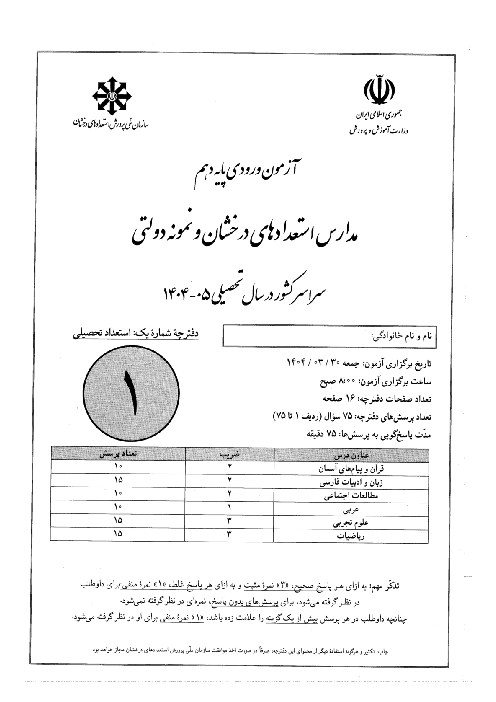 جمهوری اسلامی ایران
وزارت آموزش و پرورش
سازمان ملی پرورش استعدادهای درخشان
آزمون ورودی پایه دهم
مدارس استعدادهای درخشان و نمونه دولتی
سراسر کشور در سال تحصیلی ۰۵-۱۴۰۴
نام و نام خانوادگی:
دفترچهٔ شمارهٔ یک: استعداد تحصیلی
۱
تاریخ برگزاری آزمون: جمعه ۳۰ / ۰۳ / ۱۴۰۴
ساعت برگزاری آزمون: ۸:۰۰ صبح
تعداد صفحات دفترچه: ۱۶ صفحه
تعداد پرسش‌های دفترچه: ۷۵ سؤال (ردیف ۱ تا ۷۵)
مدّت پاسخ‌گویی به پرسش‌ها: ۷۵ دقیقه
عناوین درس ضریب تعداد پرسش
قرآن و پیام‌های آسمان ۱۰
زبان و ادبیات فارسی ۱۵
مطالعات اجتماعی ۲ ۱۰
عربی ۱ ۱۰
علوم تجربی ۳ ۱۵
ریاضیات ۳ ۱۵
تذکّر مهم: به ازای هر پاسخ صحیح، «۳» نمرهٔ مثبت و به ازای هر پاسخ غلط، «۱» نمرهٔ منفی برای داوطلب
در نظر گرفته می‌شود. برای پرسش‌های بدون پاسخ، نمره‌ای در نظر گرفته نمی‌شود.
چنانچه داوطلب در هر پرسش بیش از یک گزینه را علامت زده باشد، «۱» نمرهٔ منفی برای او در نظر گرفته می‌شود.
چاپ، تکثیر و هرگونه استفادهٔ دیگر از محتوای این دفترچه، صرفاً در صورت اخذ موافقت سازمان ملّی پرورش استعدادهای درخشان مجاز خواهد بود.